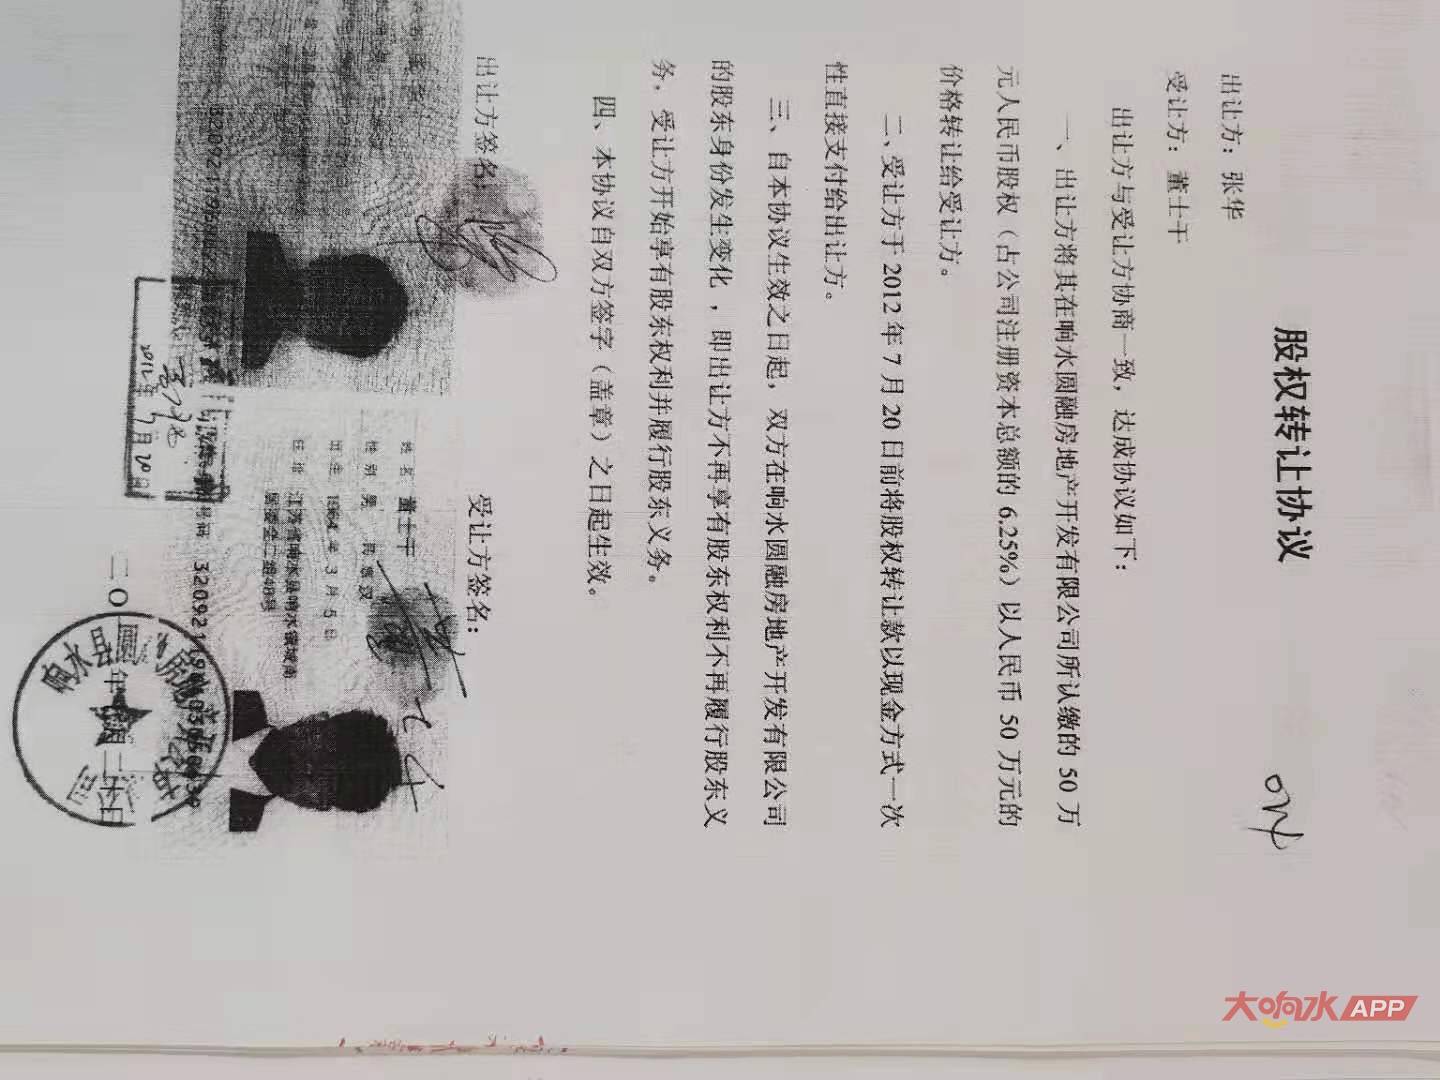 股权转让协议
出让方：张华
受让方：董士干
出让方与受让方协商一致，达成协议如下：
一、出让方将其在响水圆融房地产开发有限公司所认缴的 50 万
元人民币股权（占公司注册资本总额的 6.25%）以人民币 50 万元的
价格转让给受让方。
二、受让方于 2012 年 7 月 20 日前将股权转让款以现金方式一次
性直接支付给出让方。
三、自本协议生效之日起，双方在响水圆融房地产开发有限公司
的股东身份发生变化，即出让方不再享有股东权利不再履行股东义
务，受让方开始享有股东权利并履行股东义务。
四、本协议自双方签字（盖章）之日起生效。
出让方签名：
受让方签名：
姓名 董士干
性别 男 民族 汉
出生 1964 年 3 月 5 日
住址 江苏省响水县响水镇
2012年7月20日
二〇
年
二十日
响水县圆
大响水APP